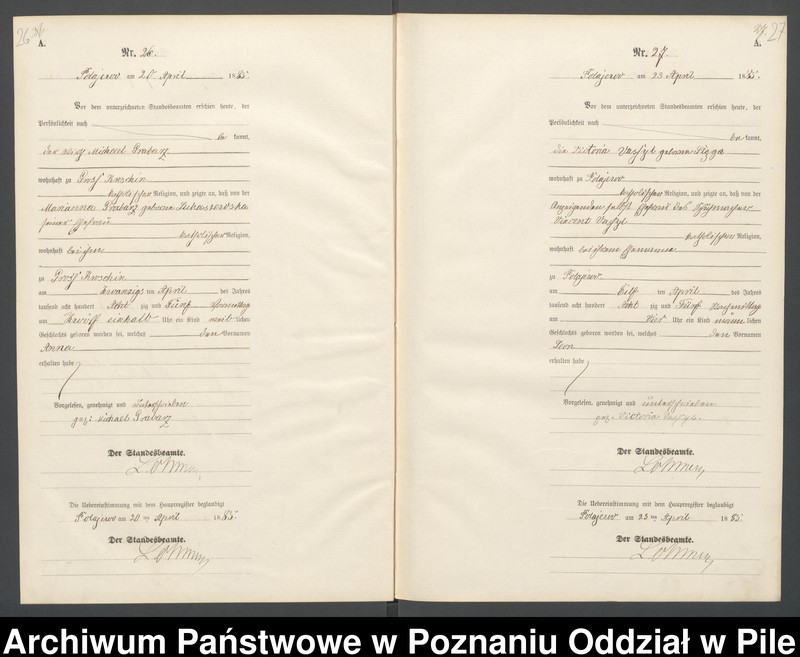 26
A.
Nr. 26.
Polajewo am 20 April 1885.
Vor dem unterzeichneten Standesbeamten erschien heute, der
Persönlichkeit nach
be kannt,
der Michael Grabarz
wohnhaft zu Groß Kroschin
katholischer Religion, und zeigte an, daß von der
Marianna Grabarz geborene Lukaszewska
seiner Ehefrau
katholischer Religion,
wohnhaft bei ihm
zu Groß Kroschin
am zwanzigsten April des Jahres
tausend acht hundert Acht zig und Fünf Vormittag
um Zwölf einhalb Uhr ein Kind weib lichen
Geschlechts geboren worden sei, welches den Vornamen
Anna
erhalten habe
Vorgelesen, genehmigt und unterschrieben
gez: Michael Grabarz
Der Standesbeamte.
Die Uebereinstimmung mit dem Hauptregister beglaubigt
Polajewo am 20 ten April 1885.
Der Standesbeamte.
27
A.
Nr. 27.
Polajewo am 23 April 1885.
Vor dem unterzeichneten Standesbeamten erschien heute, der
Persönlichkeit nach
be kannt,
die Victoria geborene
wohnhaft zu Polajewo
katholischer Religion, und zeigte an, daß von der
Anzeigenden selbst Ehefrau des
Vincent
katholischer Religion,
wohnhaft bei ihrem Ehemanne
zu Polajewo
am Elf ten April des Jahres
tausend acht hundert Acht zig und Fünf Nachmittag
um Vier Uhr ein Kind männ lichen
Geschlechts geboren worden sei, welches den Vornamen
Leon
erhalten habe
Vorgelesen, genehmigt und unterschrieben
gez. Victoria
Der Standesbeamte.
Die Uebereinstimmung mit dem Hauptregister beglaubigt
Polajewo am 23 ten April 1885.
Der Standesbeamte.
Archiwum Państwowe w Poznaniu Oddział w Pile